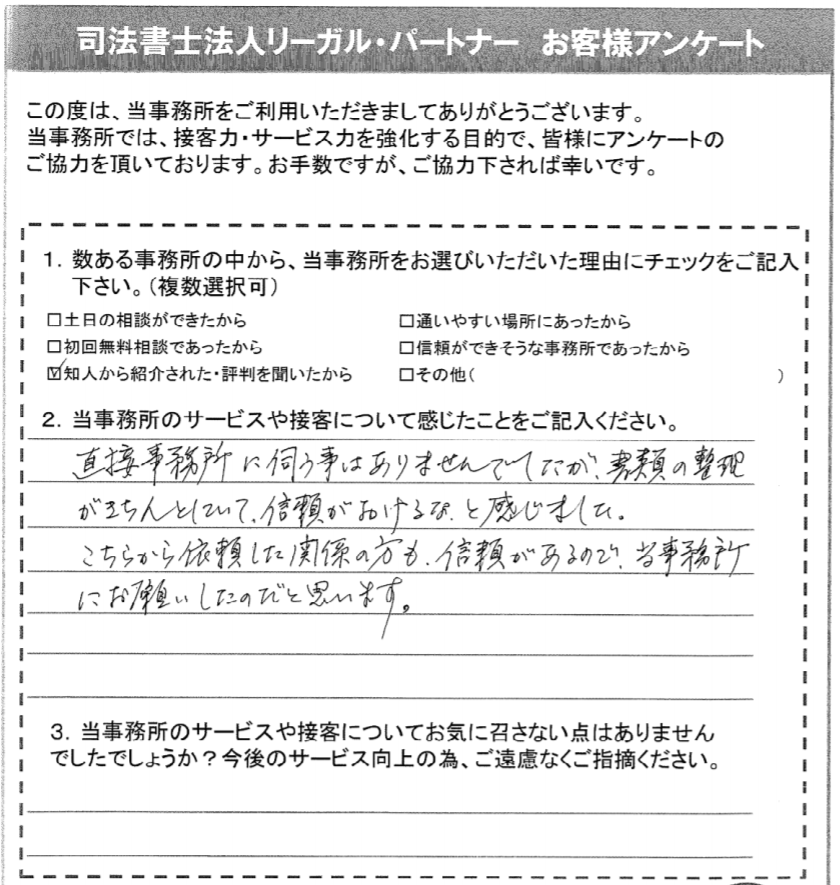 司法書士法人リーガル・パートナー お客様アンケート
この度は、当事務所をご利用いただきましてありがとうございます。
当事務所では、接客力・サービス力を強化する目的で、皆様にアンケートの
ご協力を頂いております。お手数ですが、ご協力下されば幸いです。
1. 数ある事務所の中から、当事務所をお選びいただいた理由にチェックをご記入
下さい。(複数選択可)
□土日の相談ができたから □通いやすい場所にあったから
□初回無料相談であったから □信頼ができそうな事務所であったから
☑知人から紹介された・評判を聞いたから □その他( )
2. 当事務所のサービスや接客について感じたことをご記入ください。
直接事務所に伺う事はありませんでしたが、書類の整理
がきちんとしていて、信頼がおけるな、と感じました。
こちらから依頼した関係の方も、信頼があるので、当事務所
にお願いしたのだと思います。
3. 当事務所のサービスや接客についてお気に召さない点はありません
でしたでしょうか？今後のサービス向上の為、ご遠慮なくご指摘ください。